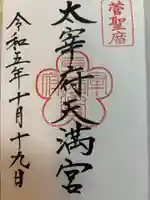 菅聖廟
太宰府天満宮
令和五年十月十九日